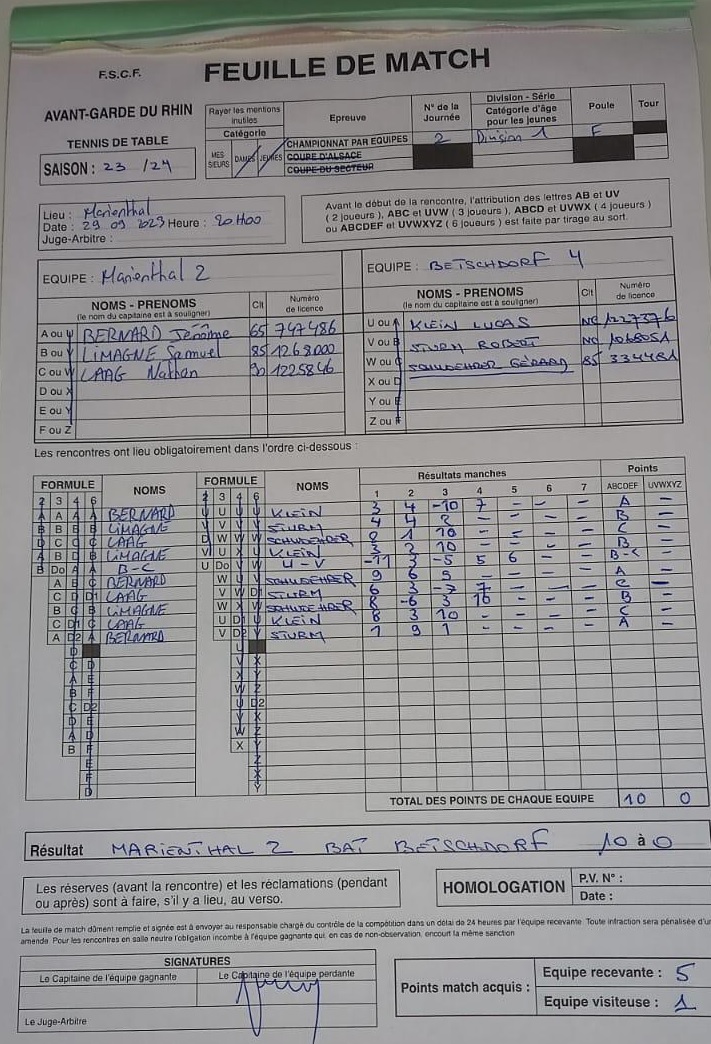 F.S.C.F. FEUILLE DE MATCH
AVANT-GARDE DU RHIN
TENNIS DE TABLE
SAISON : 23 /24
Rayer les mentions inutiles
Catégorie
MES SIEURS DAMES JEUNES
Epreuve
CHAMPIONNAT PAR EQUIPES
COUPE D'ALSACE
COUPE DU SECTEUR
N° de la Journée
2
Division - Série
Catégorie d'âge pour les jeunes
Division 1
Poule
F
Tour
Lieu : Marienthal
Date : 29 09 2023 Heure : 20H00
Juge-Arbitre :
Avant le début de la rencontre, l'attribution des lettres AB et UV
( 2 joueurs ), ABC et UVW ( 3 joueurs ), ABCD et UVWX ( 4 joueurs )
ou ABCDEF et UVWXYZ ( 6 joueurs ) est faite par tirage au sort.
EQUIPE : Marienthal 2
NOMS - PRENOMS Clt Numéro
(le nom du capitaine est à souligner) de licence
A ou U BERNARD Jérôme 65 747486
B ou V LIMAGNE Samuel 85 1268000
C ou W LAAG Nathan 90 1225846
D ou X
E ou Y
F ou Z
EQUIPE : BETSCHDORF 4
NOMS - PRENOMS Clt Numéro
(le nom du capitaine est à souligner) de licence
U ou A KLEIN LUCAS NC 1227376
V ou B STURM ROBERT NC 1068051
W ou C SCHWOEHRER GÉRARD 85 334481
X ou D
Y ou E
Z ou F
Les rencontres ont lieu obligatoirement dans l'ordre ci-dessous :
FORMULE NOMS FORMULE NOMS Résultats manches Points
2 3 4 6 2 3 4 6 1 2 3 4 5 6 7 ABCDEF UVWXYZ
A A A A BERNARD U U U U KLEIN 3 4 -10 7 - - - A -
B B B B LIMAGNE V V V V STURM 4 4 2 - - - - B -
C C C LAAG W W W SCHWOEHRER 8 1 10 - - - - C -
A B D B LIMAGNE V U X U KLEIN 3 2 10 - - - - B -
B Do A A B-C U Do V W U-V -11 3 -5 5 6 - - B-C -
A B C BERNARD W SCHWOEHRER 9 6 9 - - - - A -
C D D1 LAAG V W D1 STURM 6 3 -7 7 - - - C -
B C B LIMAGNE W X SCHWOEHRER 8 -6 3 10 - - - B -
C D1 C LAAG U D1 KLEIN 8 3 10 - - - - C -
A D2 A BERNARD V D2 STURM 1 9 1 - - - - A -
TOTAL DES POINTS DE CHAQUE EQUIPE 10 0
Résultat MARIENTHAL 2 BAT BETSCHDORF 10 à 0
Les réserves (avant la rencontre) et les réclamations (pendant
ou après) sont à faire, s'il y a lieu, au verso.
HOMOLOGATION
P.V. N° :
Date :
La feuille de match dûment remplie et signée est à envoyer au responsable chargé du contrôle de la compétition dans un délai de 24 heures par l'équipe recevante. Toute infraction sera pénalisée d'un
amende. Pour les rencontres en salle neutre l'obligation incombe à l'équipe gagnante qui, en cas de non-observation, encourt la même sanction
SIGNATURES
Le Capitaine de l'équipe gagnante Le Capitaine de l'équipe perdante
Le Juge-Arbitre
Points match acquis :
Equipe recevante : 5
Equipe visiteuse : 1